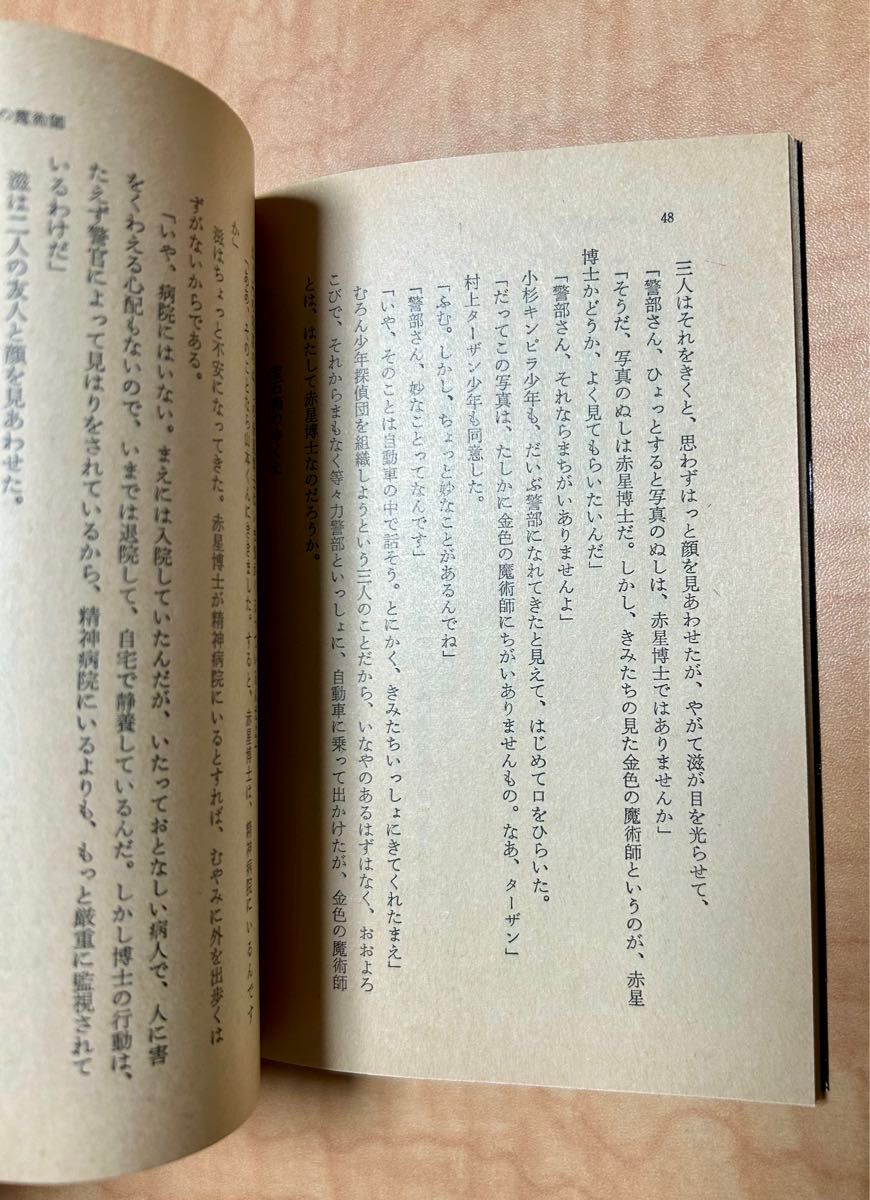 48
三人はそれをきくと、思わずはっと顔を見あわせたが、やがて滋が目を光らせて、
「警部さん、ひょっとすると写真のぬしは、赤星博士ではありませんか」
「そうだ、写真のぬしは赤星博士だ。しかし、きみたちの見た金色の魔術師というのが、赤星
博士かどうか、よく見てもらいたいんだ」
「警部さん、それならまちがいありませんよ」
小杉キンピラ少年も、だいぶ警部になれてきたと見えて、はじめて口をひらいた。
「だってこの写真は、たしかに金色の魔術師にちがいありませんもの。なあ、ターザン」
村上ターザン少年も同意した。
「ふむ。しかし、ちょっと妙なことがあるんでね」
「警部さん、妙なことってなんです」
「いや、そのことは自動車の中で話そう。とにかく、きみたちいっしょにきてくれたまえ」
むろん少年探偵団を組織しようという三人のことだから、いなやのあるはずはなく、おおよろ
こびで、それからまもなく等々力警部といっしょに、自動車に乗って出かけたが、金色の魔術師
とは、はたして赤星博士なのだろうか。
の魔術師
すると、赤星博士は、精神病院にいるんです
か」
滋はちょっと不安になってきた。赤星博士が精神病院にいるとすれば、むやみに外を出歩くは
ずがないからである。
「いや、病院にはいない。まえには入院していたんだが、いたっておとなしい病人で、人に害
をくわえる心配もないので、いまでは退院して、自宅で静養しているんだ。しかし博士の行動は、
たえず警官によって見はりをされているから、精神病院にいるよりも、もっと厳重に監視されて
いるわけだ」
滋は二人の友人と顔を見あわせた。